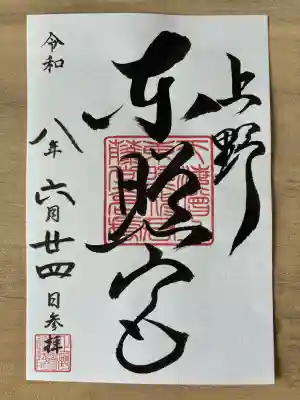 上野
東照宮
令和
八年
六月廿四日参拝